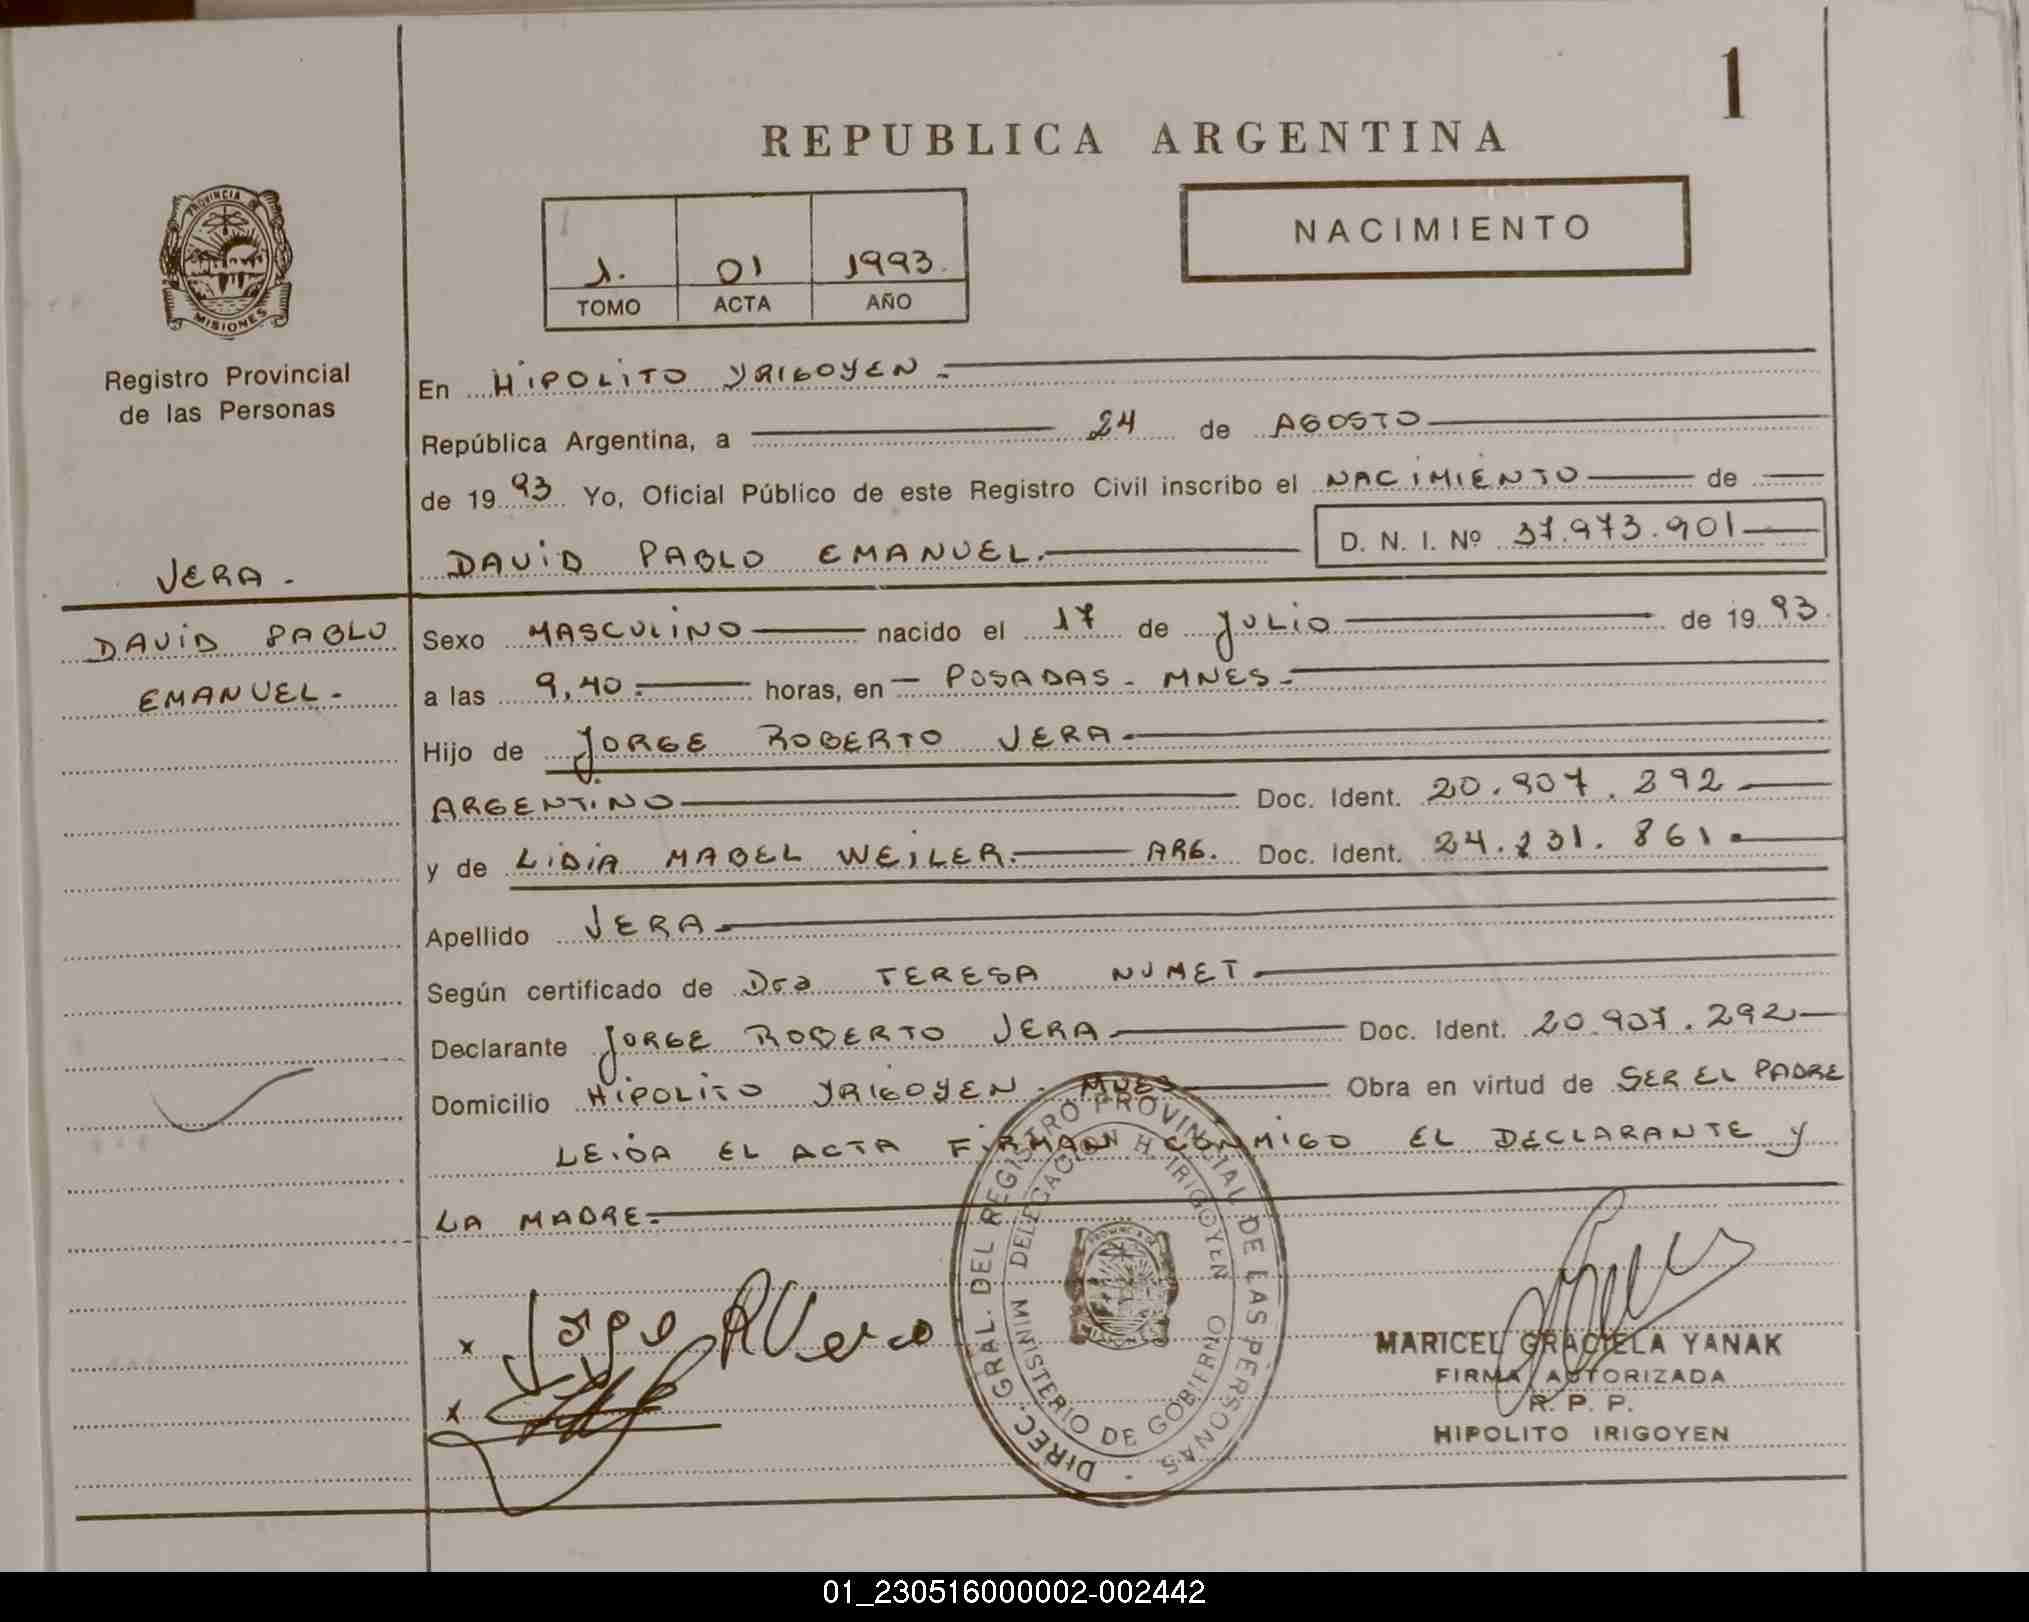 1
REPUBLICA ARGENTINA
PROVINCIA DE
MISIONES
Registro Provincial
de las Personas
1. 01 1993.
TOMO ACTA AÑO
NACIMIENTO
En HIPOLITO YRIGOYEN.
República Argentina, a 24 de AGOSTO
de 1993 Yo, Oficial Público de este Registro Civil inscribo el NACIMIENTO de
DAVID PABLO EMANUEL. D. N. I. Nº 37.973.901
VERA.
DAVID PABLO
EMANUEL.
Sexo MASCULINO nacido el 17 de JULIO de 1993.
a las 9,40. horas, en POSADAS - MNES.
Hijo de JORGE ROBERTO VERA.
ARGENTINO Doc. Ident. 20.907.292
y de LIDIA MABEL WEILER. ARG. Doc. Ident. 24.231.861.
Apellido VERA.
Según certificado de Dra TERESA NUMET.
Declarante JORGE ROBERTO VERA Doc. Ident. 20.907.292
Domicilio HIPOLITO YRIGOYEN - MNES Obra en virtud de SER EL PADRE
LEIDA EL ACTA FIRMAN CONMIGO EL DECLARANTE Y
LA MADRE.
x Jorge R Vera
x
DIREC. GRAL. DEL REGISTRO PROVINCIAL DE LAS PERSONAS
DELEGACION H. IRIGOYEN
MINISTERIO DE GOBIERNO
MARICEL GRACIELA YANAK
FIRMA AUTORIZADA
R. P. P.
HIPOLITO IRIGOYEN
01_230516000002-002442